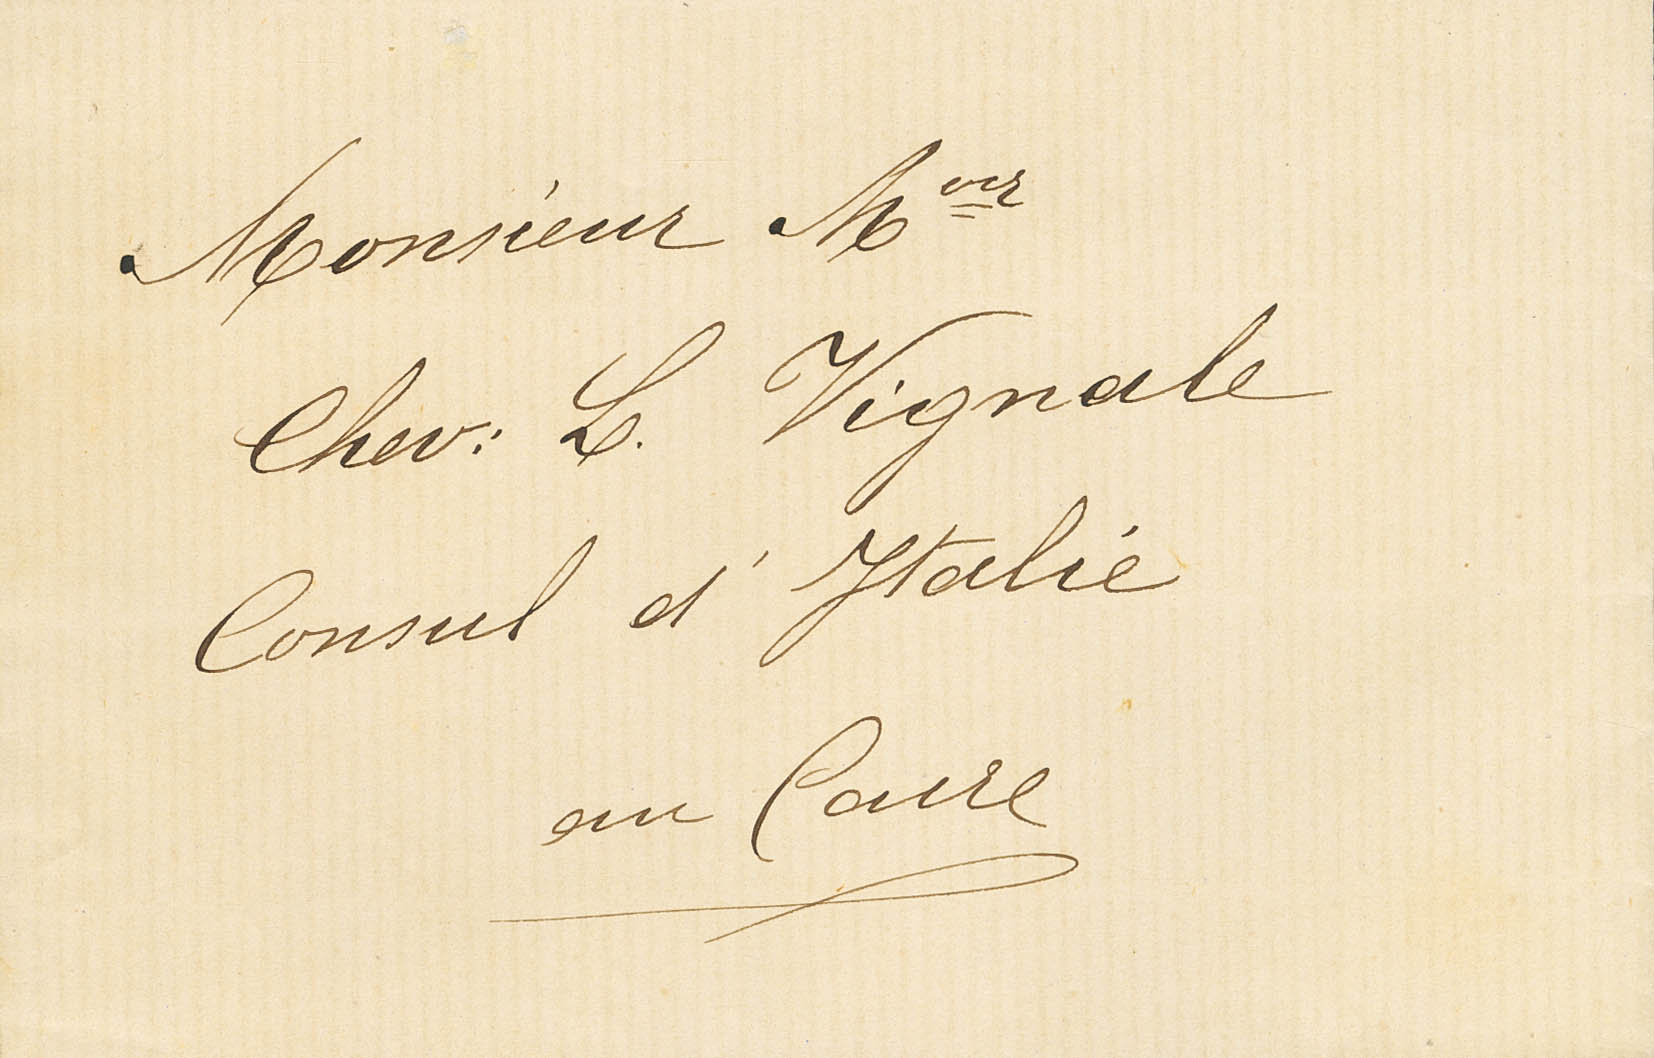 Monsieur M
Chev: L. Vignale
Consul d'Italie
au Caire